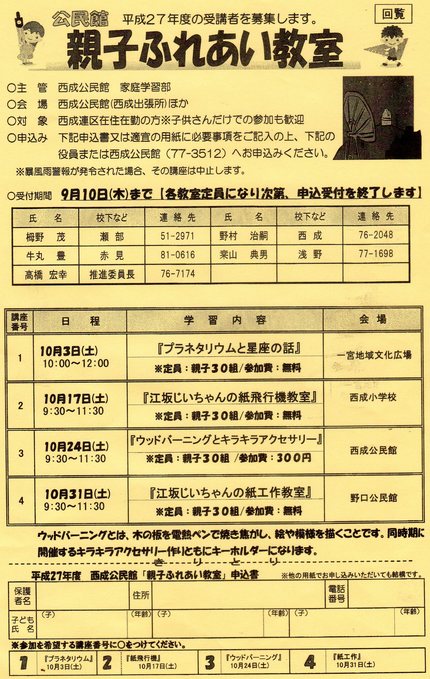 回覧
公民館 平成27年度の受講者を募集します。
親子ふれあい教室
○主 管 西成公民館 家庭学習部
○会 場 西成公民館(西成出張所)ほか
○対 象 西成連区在住在勤の方※子供さんだけでの参加も歓迎
○申込み 下記申込書又は適宜の用紙に必要事項をご記入の上、下記の
役員または西成公民館(77-3512)へお申込みください。
※暴風雨警報が発令された場合、その講座は中止します。
○受付期間 9月10日(木)まで【各教室定員になり次第、申込受付を終了します】
氏 名 校下など 連 絡 先 氏 名 校下など 連 絡 先
栂野 茂 瀬 部 51-2971 野村 治嗣 西 成 76-2048
牛丸 豊 赤 見 81-0616 典男 浅 野 77-1698
高橋 宏幸 推進委員長 76-7174
講座番号 日 程 学 習 内 容 会 場
1 10月3日(土) 10:00~12:00 『プラネタリウムと星座の話』 ※定員:親子30組/参加費:無料 一宮地域文化広場
2 10月17日(土) 9:30~11:30 『江坂じいちゃんの紙飛行機教室』 ※定員:親子30組/参加費:無料 西成小学校
3 10月24日(土) 9:30~11:30 『ウッドバーニングとキラキラアクセサリー』 ※定員:親子30組/参加費:300円 西成公民館
4 10月31日(土) 9:30~11:30 『江坂じいちゃんの紙工作教室』 ※定員:親子30組/参加費:無料 野口公民館
ウッドバーニングとは、木の板を電熱ペンで焼き焦がし、絵や模様を描くことです。同時期に
開催するキラキラアクセサリー作りともにキーホルダーになります。
きりとり
平成27年度 西成公民館「親子ふれあい教室」申込書 ※他の用紙でお申し込みいただいても結構です。
保護者名 住所 電話番号
子ども氏名 (子) (年齢) (子) (年齢) (子) (年齢)
※参加を希望する講座番号に○をつけてください。
1 『プラネタリウム』 10月3日(土) 2 『紙飛行機』 10月17日(土) 3 『ウッドバーニング』 10月24日(土) 4 『紙工作』 10月31日(土)